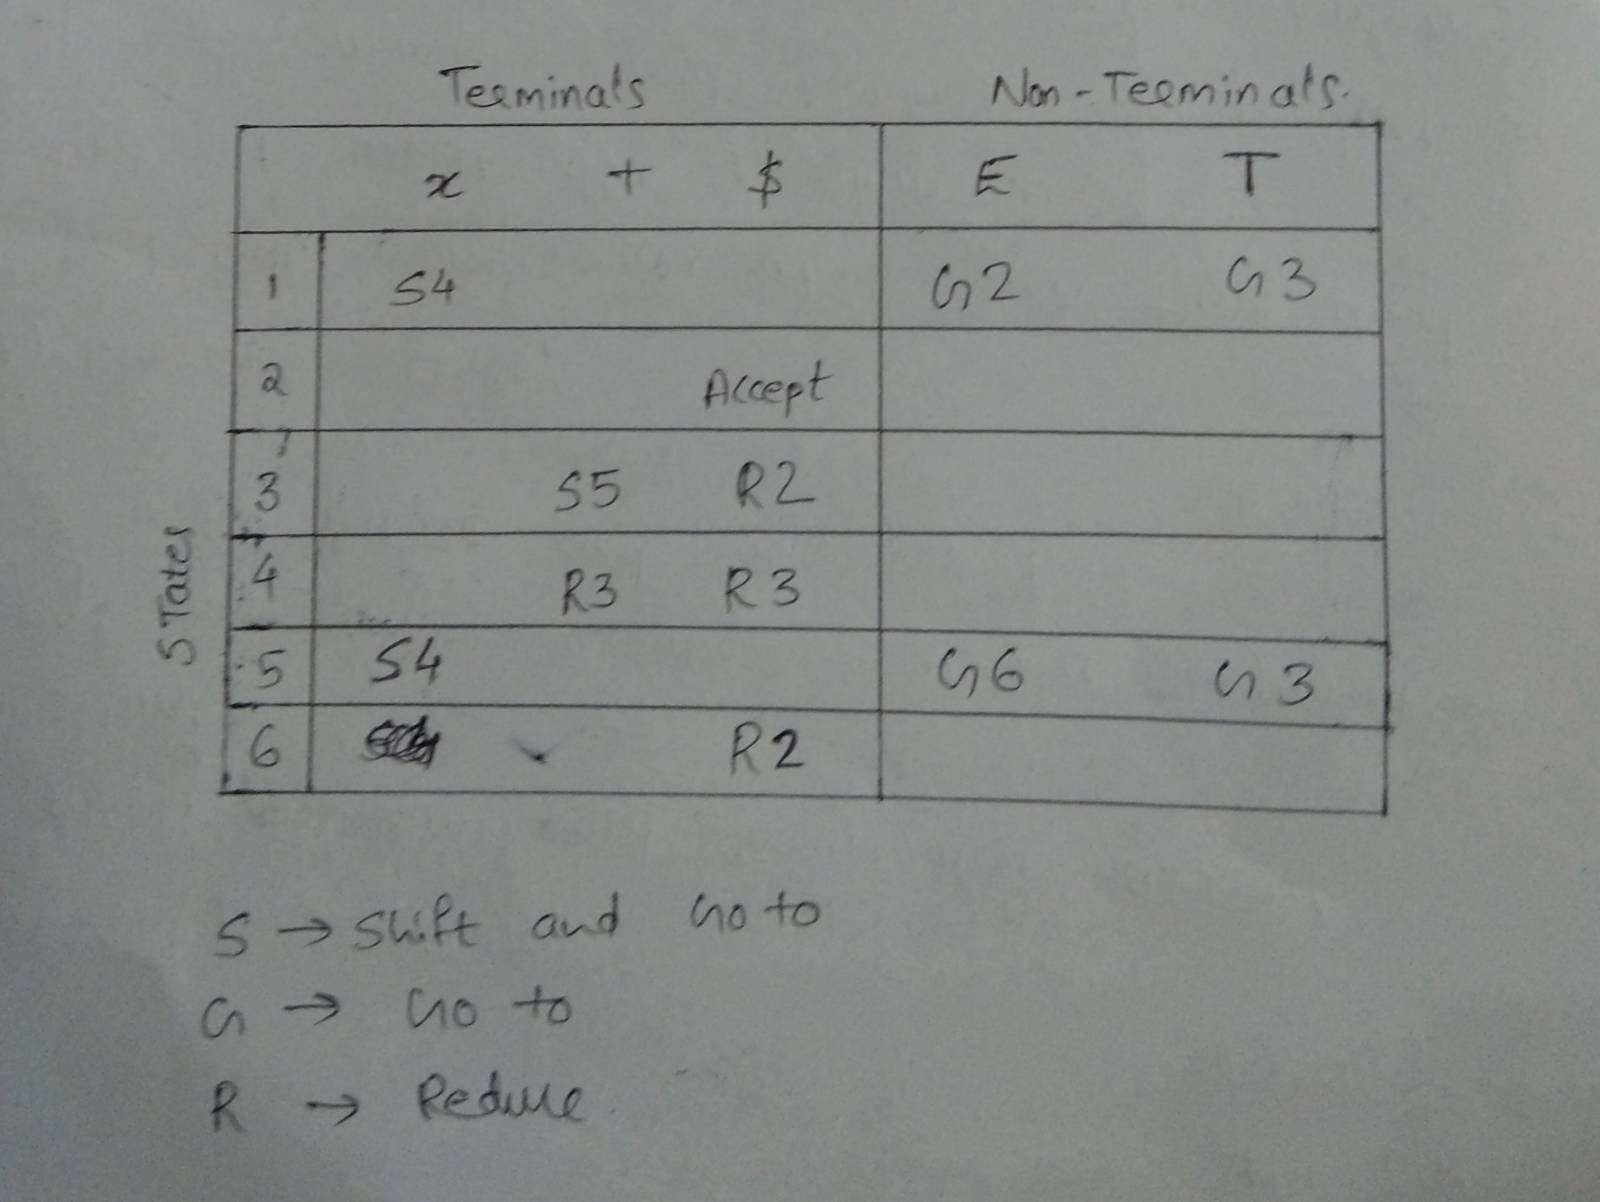 Terminals Non-Terminals.
x + $ E T
1 S4 G2 G3
2 Accept
3 S5 R2
4 R3 R3
5 S4 G6 G3
6 R2
States
S → Shift and Go to
G → Go to
R → Reduce.